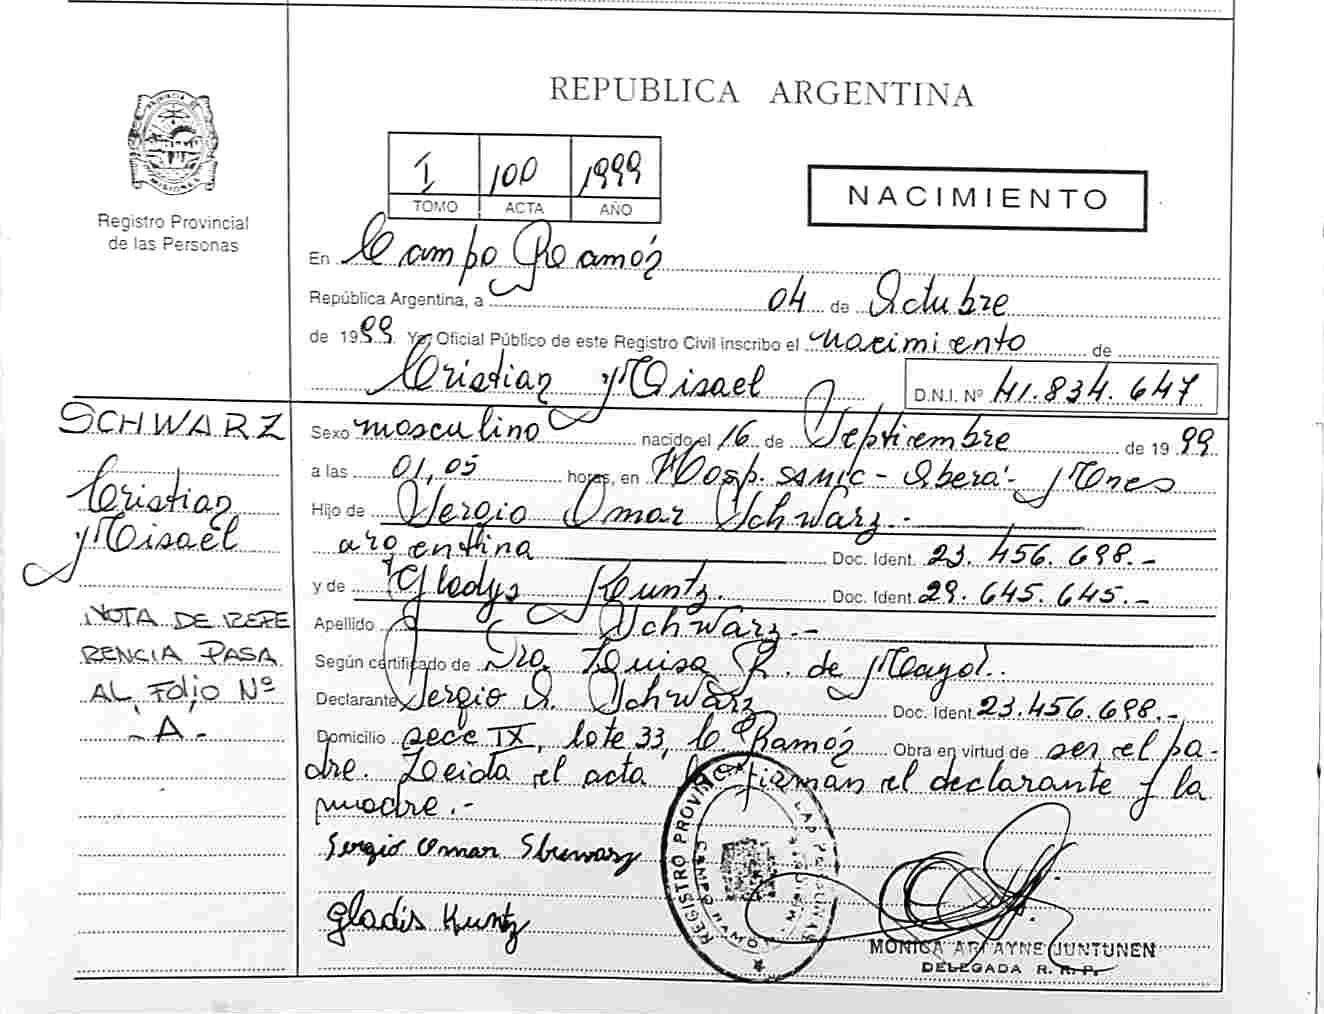 REPUBLICA ARGENTINA
PROVINCIA DE
MISIONES
Registro Provincial
de las Personas
I 100 1999
TOMO ACTA AÑO
NACIMIENTO
En Campo Ramón
República Argentina, a 04 de Octubre
de 1999. Yo, Oficial Público de este Registro Civil inscribo el nacimiento de
Cristian Misael
D.N.I. Nº 41.834.647
SCHWARZ
Cristian
Misael
NOTA DE REFE
RENCIA PASA
AL FOLIO Nº
-A-
Sexo masculino nacido el 16 de Septiembre de 1999
a las 01,05 horas, en Hosp. SAMIC - Oberá - Mnes
Hijo de Sergio Omar Schwarz.-
argentina Doc. Ident. 23.456.698.-
y de Gladys Kuntz. Doc. Ident. 29.645.645.-
Apellido Schwarz.-
Según certificado de Dra. Luisa R. de Mayol.
Declarante Sergio O. Schwarz Doc. Ident. 23.456.698.-
Domicilio secc IX, lote 33, Cº Ramón Obra en virtud de ser el pa-
dre. Leida el acta, la firman el declarante y la
madre.-
Sergio Omar Shwarz
Gladis Kuntz
REGISTRO PROVINCIAL DE LAS PERSONAS
CAMPO RAMON MISIONES
MONICA ARLAYNE JUNTUNEN
DELEGADA R. R. P.